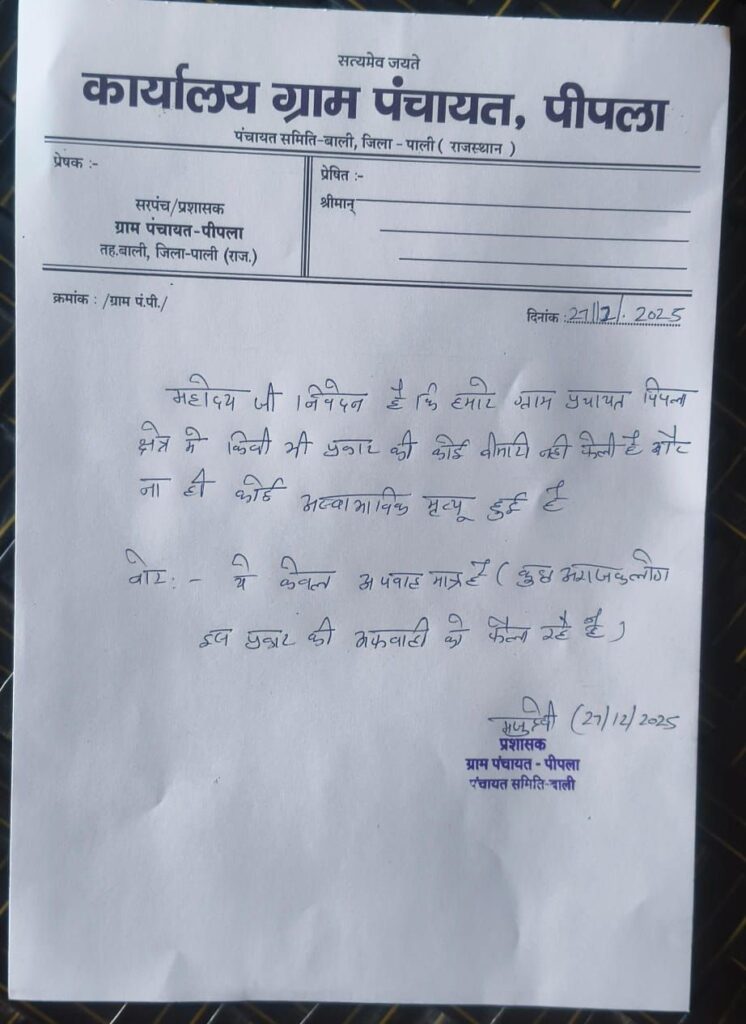 सत्यमेव जयते
कार्यालय ग्राम पंचायत, पीपला
पंचायत समिति-बाली, जिला - पाली ( राजस्थान )
प्रेषक :-
सरपंच/प्रशासक
ग्राम पंचायत-पीपला
तह.बाली, जिला-पाली (राज.)
प्रेषित :-
श्रीमान्
क्रमांक : /ग्राम पं.पी./
दिनांक :27/12/. 2025
महोदय जी निवेदन है कि हमारे ग्राम पंचायत पिपला
क्षेत्र मे किसी भी प्रकार की कोई बीमारी नही फेली है और
ना ही कोई अस्वाभाविक मृत्यू हुई है
नोट :- ये केवल अपवाह मात्र है ( कुछ अराजक लोग
इस प्रकार की अफवाही को फैला रहे है )
मजु देवी (27/12/2025
प्रशासक
ग्राम पंचायत - पीपला
पंचायत समिति-बाली